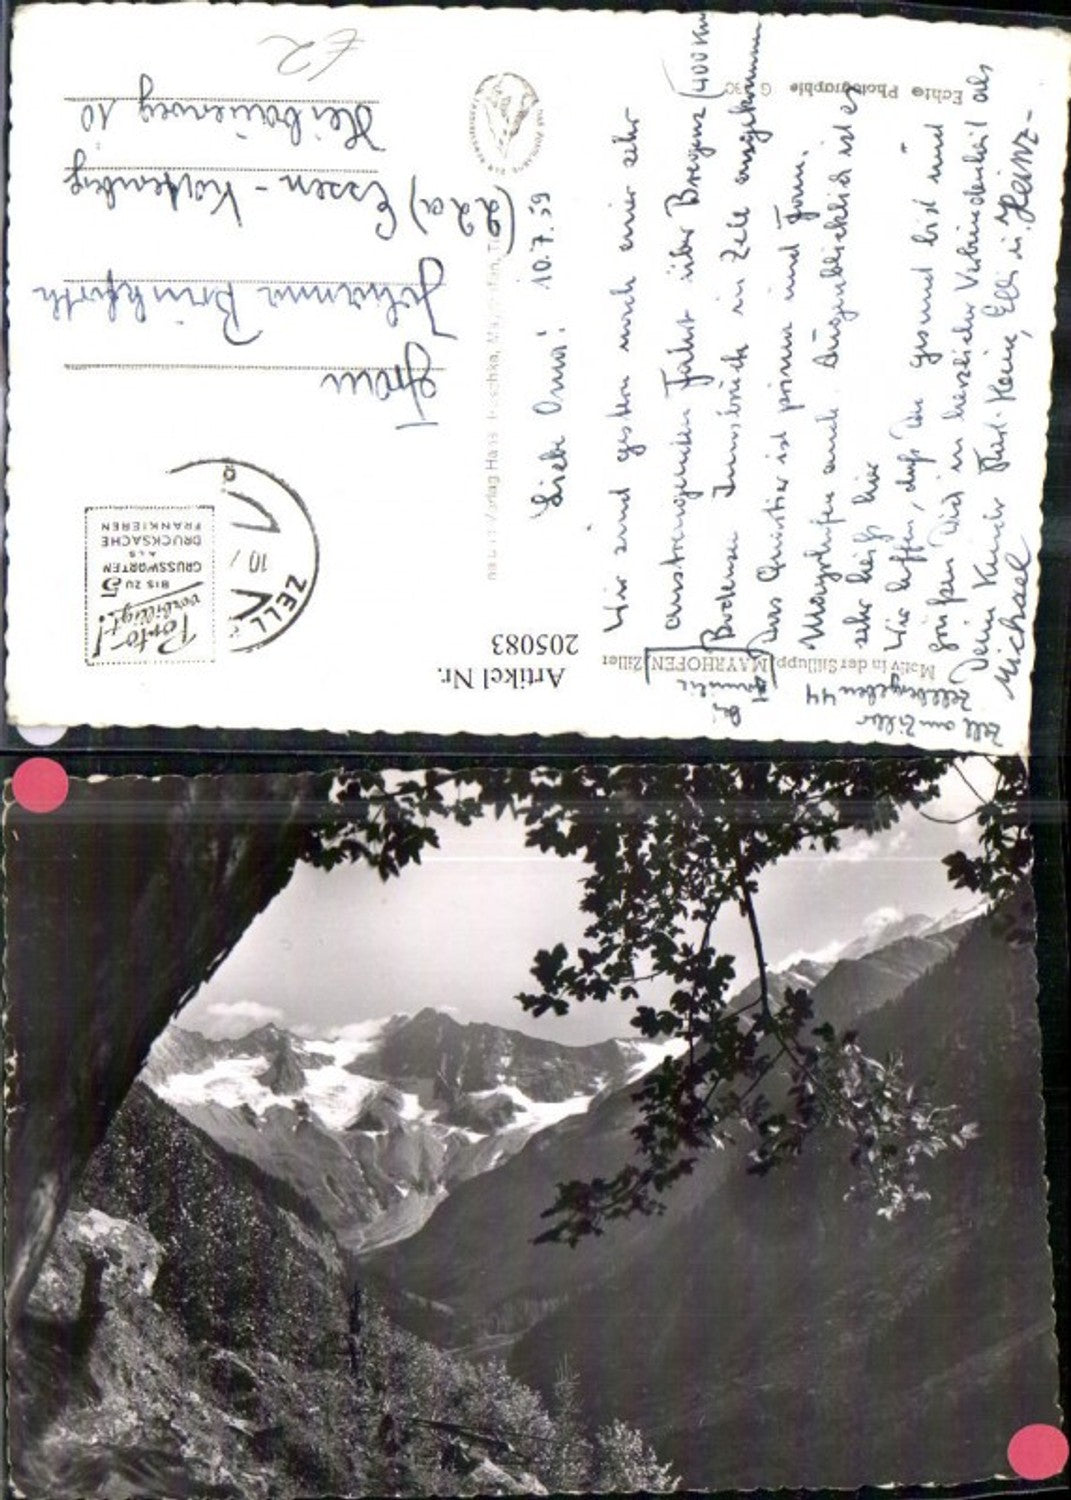 Liebe Oma! 10.7.59
Wir sind gestern nach einer sehr
anstrengenden Fahrt über Bregenz (400 km
Bodensee Innsbruck in Zell angekommen
Das Quartier ist prima und
Mayrhofen auch. Augenblicklich ist es
sehr heiß hier
Wir hoffen, daß Du gesund bist und
grüßen Dich in herzlicher Verbundenheit als
Deine Kinder Heinz-
Michael
Zell am Ziller
Zellbergeben 44
bei
Familie
Frau
Johanna Brinkforth
(22a) Essen-
10
£2
Motiv in der Stillupp, MAYRHOFEN, Ziller
Echte Photographie
Artikel Nr.
205083
Porto!
verbilligt!
BIS ZU 5
GRUSSWORTEN
ALS
DRUCKSACHE
FRANKIEREN
ZELL
10